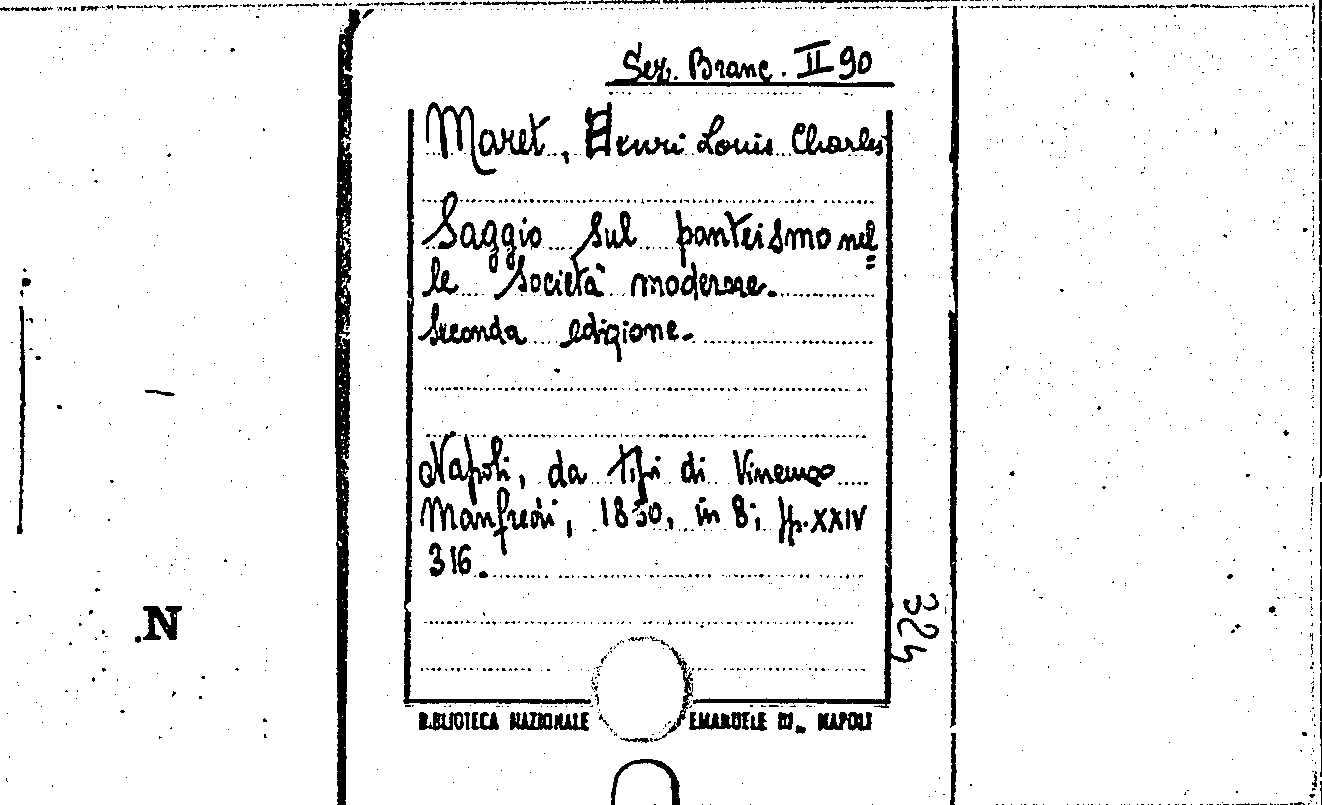 Sez. Branc. II 90
Maret, Henri Louis Charles
Saggio sul panteismo nel=
le società moderne.
Seconda edizione.
Napoli, da tipi di Vincenzo
Manfredi, 1850, in 8°, pp. XXIV
316.
324
N
BIBLIOTECA NAZIONALE EMANUELE III_ NAPOLI